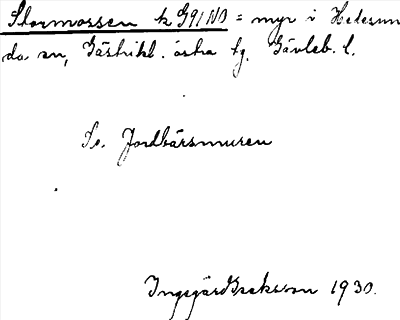 Stormossen k G91NO = myr i Hedesun
da sn, Gästrikl. östra tg. Gävleb. l.
Se. Jordbärsmuren
Ingegärd Isaksson 1930.